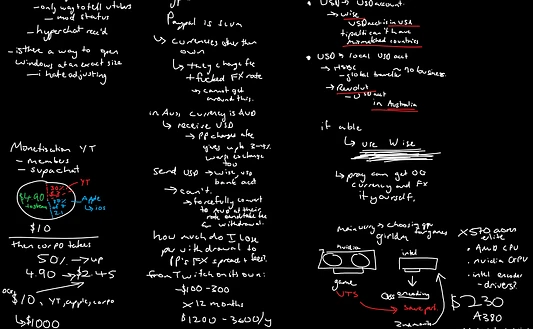 -only way to tell vtubers
- mod status
- hyperchat rec'd
- is there a way to open
windows at an exact size
- i hate adjusting
Monetisation YT
- members
- supachat
$4.90
30%
YT
30%
Apple
↳ iOS
$10
then corpo takes
50% → up
4.90 → $2.45
$10, YT, apple, corpo
↳ $1000
Paypal is scum
↳ currencies other than
own
→ they charge fee
+ fucked FX rate
→ cannot get
around this.
in Aus, currency is AUD
↳ receive USD
→ PP charges
3-4%
worse exchange
too
send USD → wise, usd
bank acct
→ can't.
→ forcefully convert
to AUD at their
rate
for withdrawal.
how much do I lose
per withdrawal to
PP's FX spread + fees?
from Twitch
-$100-300
× 12 months
$1200 - 3600/y
• USD → USD account.
→ Wise
USD acct is in USA
tipalti can't have
countries
• USD → local USD acct
→ HSBC
- global transfer
→ no business.
→ Revolut
- USD acct
in Australia
if able
↳ use Wise
↳ pray can get
currency and FX
it yourself.
nvidia
intel
game
VTS
OBS encoding
• AMD CPU
• nvidia GPU
• intel encoder
- drivers?
$230
A380